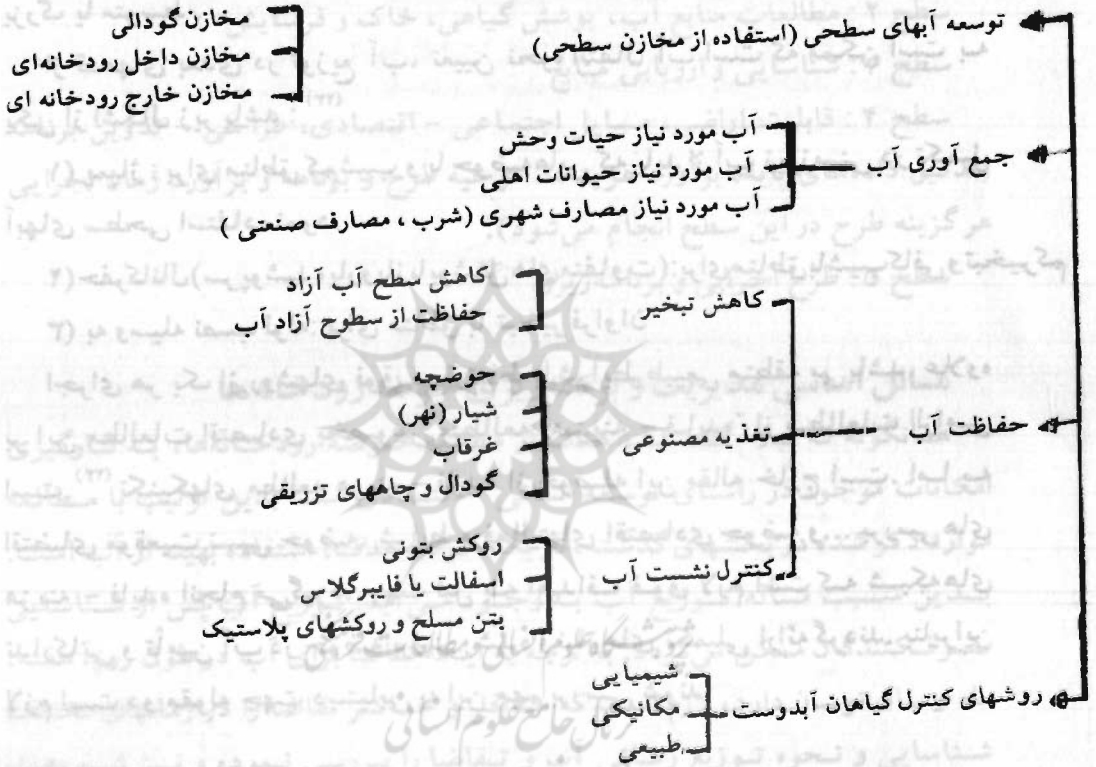 توسعه آبهای سطحی (استفاده از مخازن سطحی)
مخازن گودالی
مخازن داخل رودخانه‌ای
مخازن خارج رودخانه ای
جمع آوری آب
آب مورد نیاز حیات وحش
آب مورد نیاز حیوانات اهلی
آب مورد نیاز مصارف شهری (شرب ، مصارف صنعتی )
حفاظت آب
کاهش تبخیر
کاهش سطح آب آزاد
حفاظت از سطوح آزاد آب
تغذیه مصنوعی
حوضچه
شیار (نهر)
غرقاب
گودال و چاههای تزریقی
کنترل نشست آب
روکش بتونی
اسفالت یا فایبرگلاس
بتن مسلح و روکشهای پلاستیک
روشهای کنترل گیاهان آبدوست
شیمیایی
مکانیکی
طبیعی